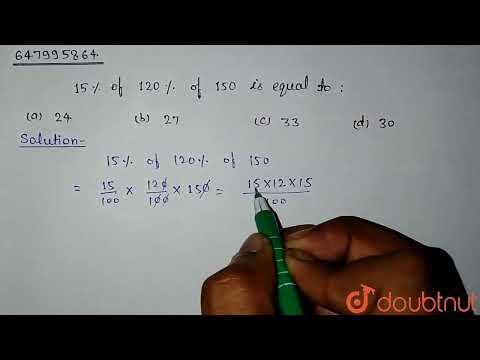 647995864
15% of 120% of 150 is equal to :
(a) 24 (b) 27 (c) 33 (d) 30
Solution-
15% of 120% of 150
= 15/100 × 120/100 × 150 = 15×12×15/100
doubtnut